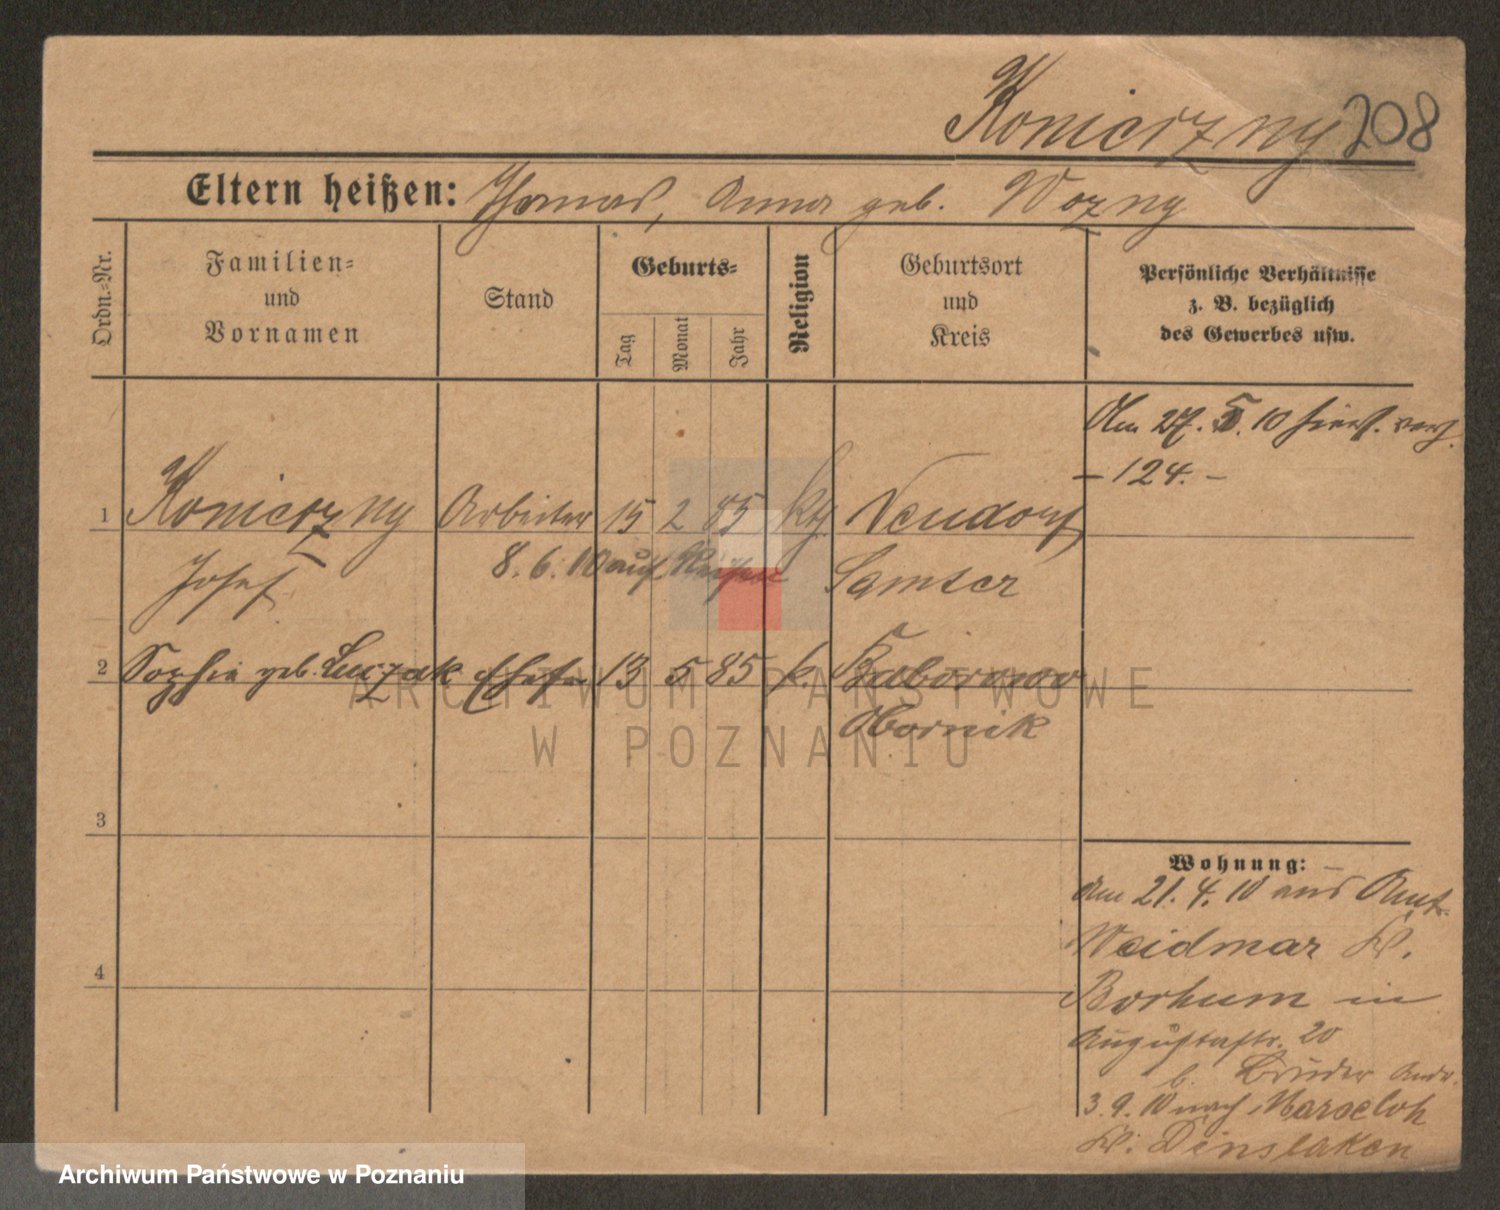 Konieczny 208
Eltern heißen: Thomas, Anna geb. Wozny
Ordn.-Nr.
Familien-
und
Vornamen
Stand
Geburts-
Tag
Monat
Jahr
Religion
Geburtsort
und
Kreis
Persönliche Verhältnisse
z. B. bezüglich
des Gewerbes usw.
Am 27. 5. 10 hier
- 124. -
1 Konieczny Arbeiter 15 2 85 kth Neudorf
Josef
8. 6. 10 auf Reisen
Samter
2 Sophia geb. Luczak Ehefr 13 5 85 k. Baborowo
Obornik
3
4
Wohnung:
Am 21. 4. 10 aus Amt
Weidmar K.
Bochum in
Auguststr. 20
b. Bruder Andr.
3. 9. 10 nach Marxloh
K. Dinslaken
ARCHIWUM PAŃSTWOWE
W POZNANIU
Archiwum Państwowe w Poznaniu